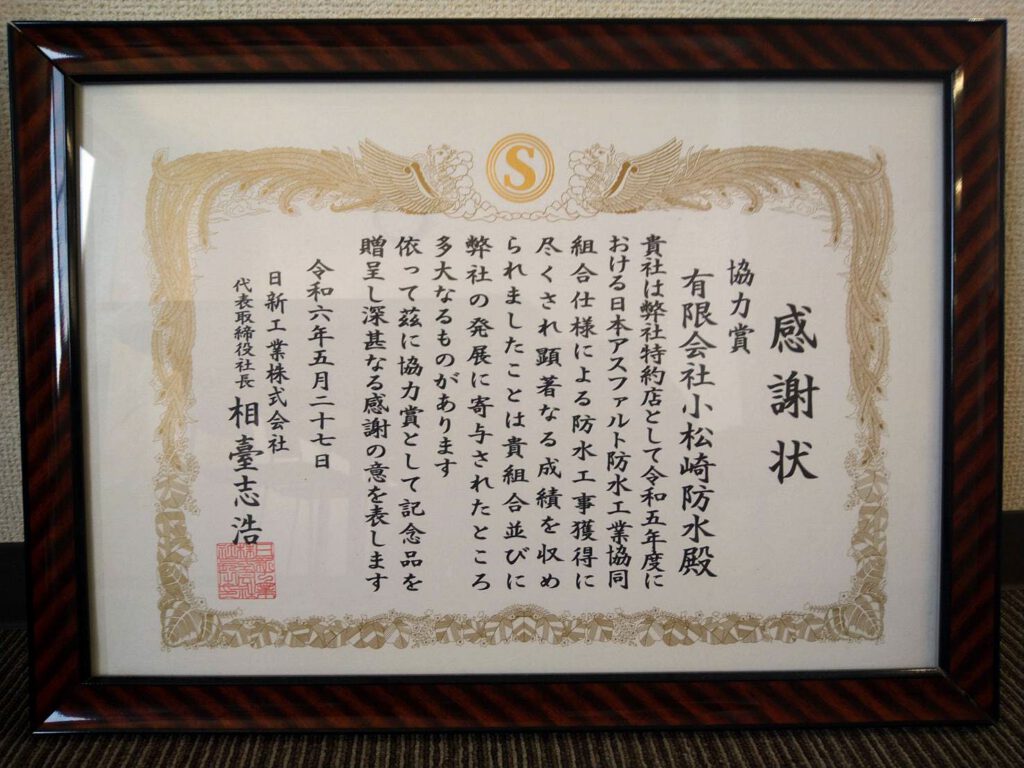 S
感謝状
協力賞
有限会社小松崎防水殿
貴社は弊社特約店として令和五年度に
おける日本アスファルト防水工業協同
組合仕様による防水工事獲得に
尽くされ顕著なる成績を収め
られましたことは貴組合並びに
弊社の発展に寄与されたところ
多大なるものがあります
依って茲に協力賞として記念品を
贈呈し深甚なる感謝の意を表します
令和六年五月二十七日
日新工業株式会社
代表取締役社長 相臺志浩